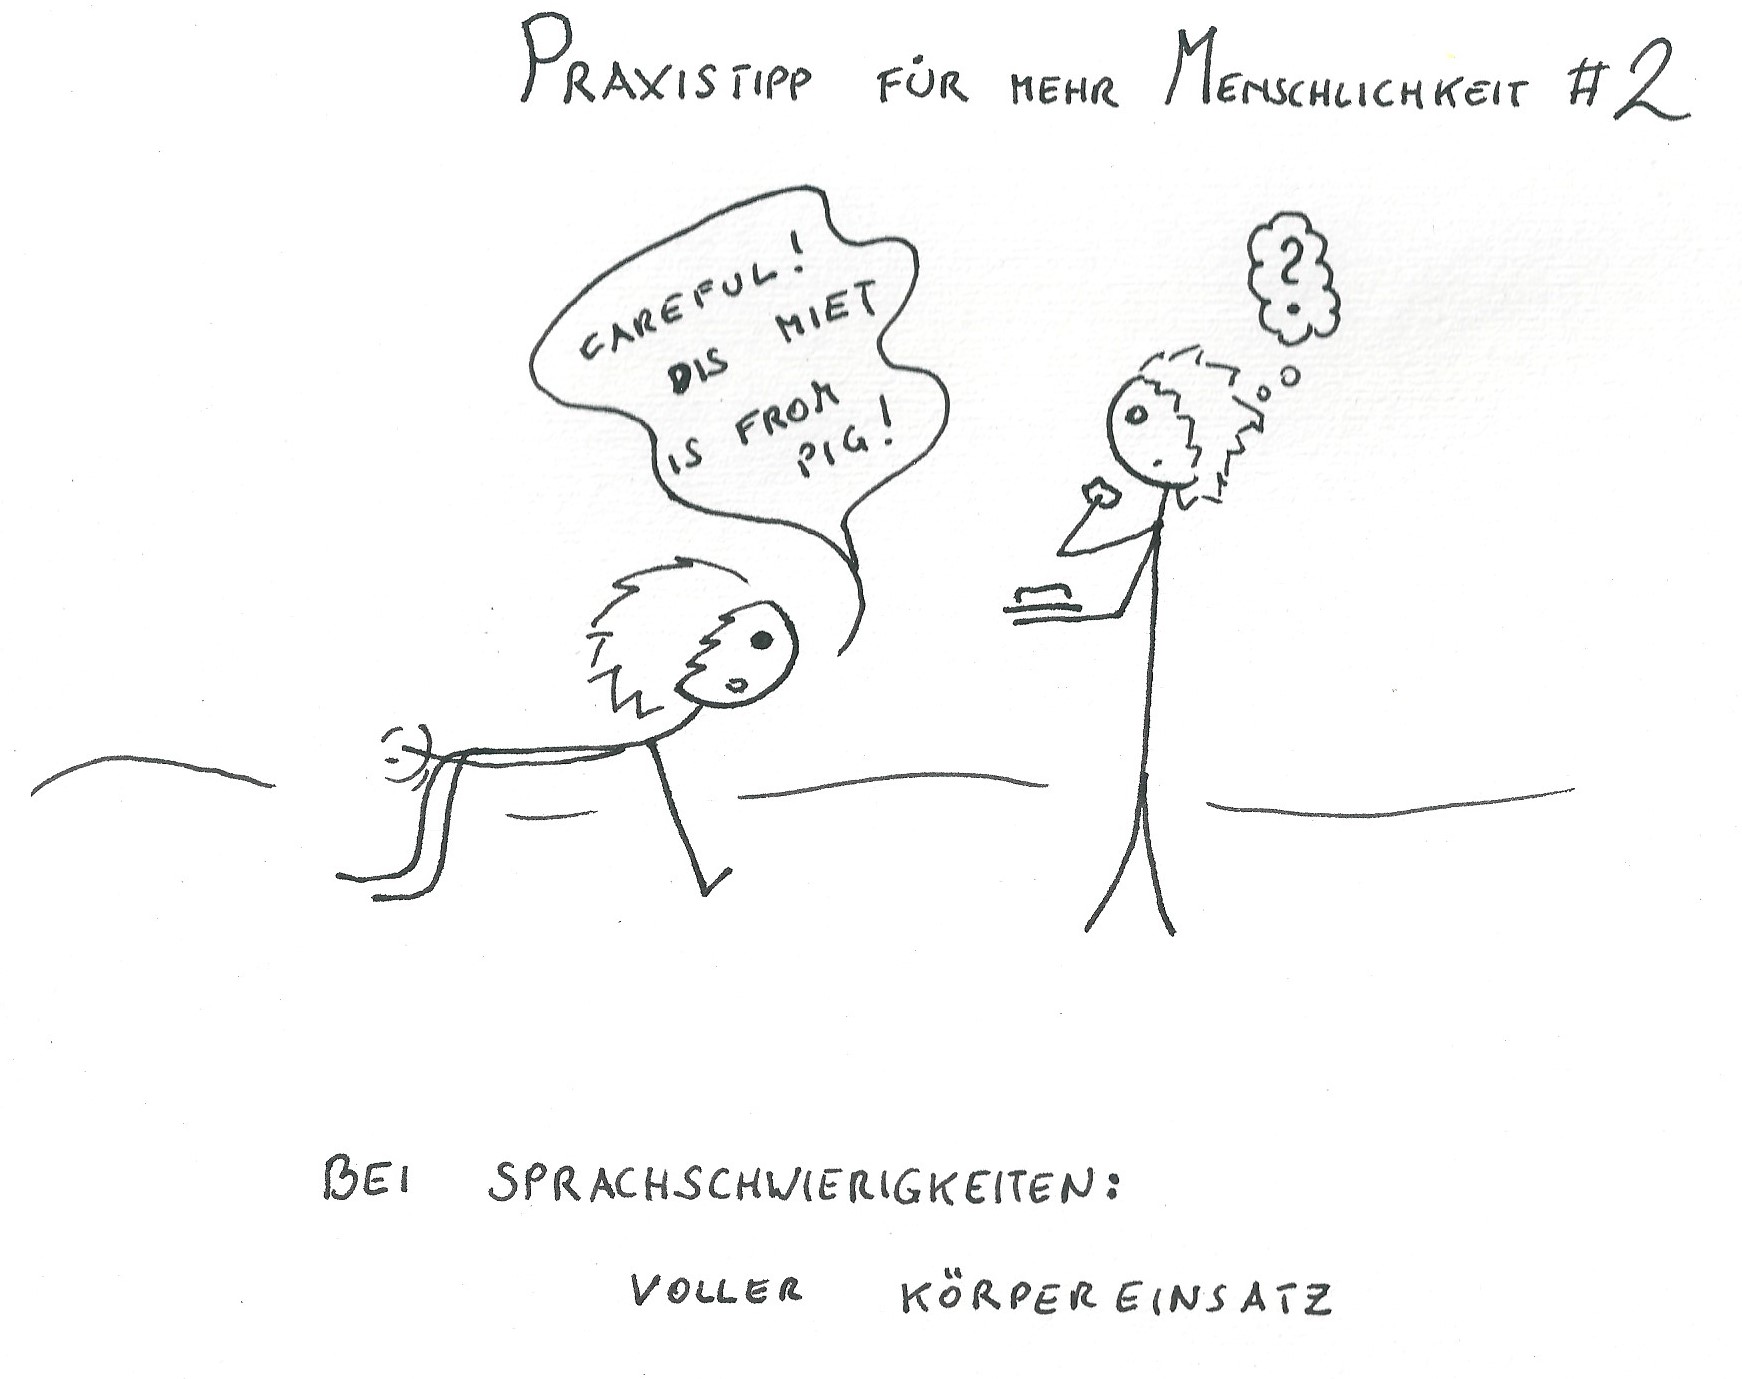 PRAXISTIPP FÜR MEHR MENSCHLICHKEIT #2
CAREFUL!
DIS MIET
IS FROM
PIG!
?
BEI SPRACHSCHWIERIGKEITEN:
VOLLER KÖRPEREINSATZ